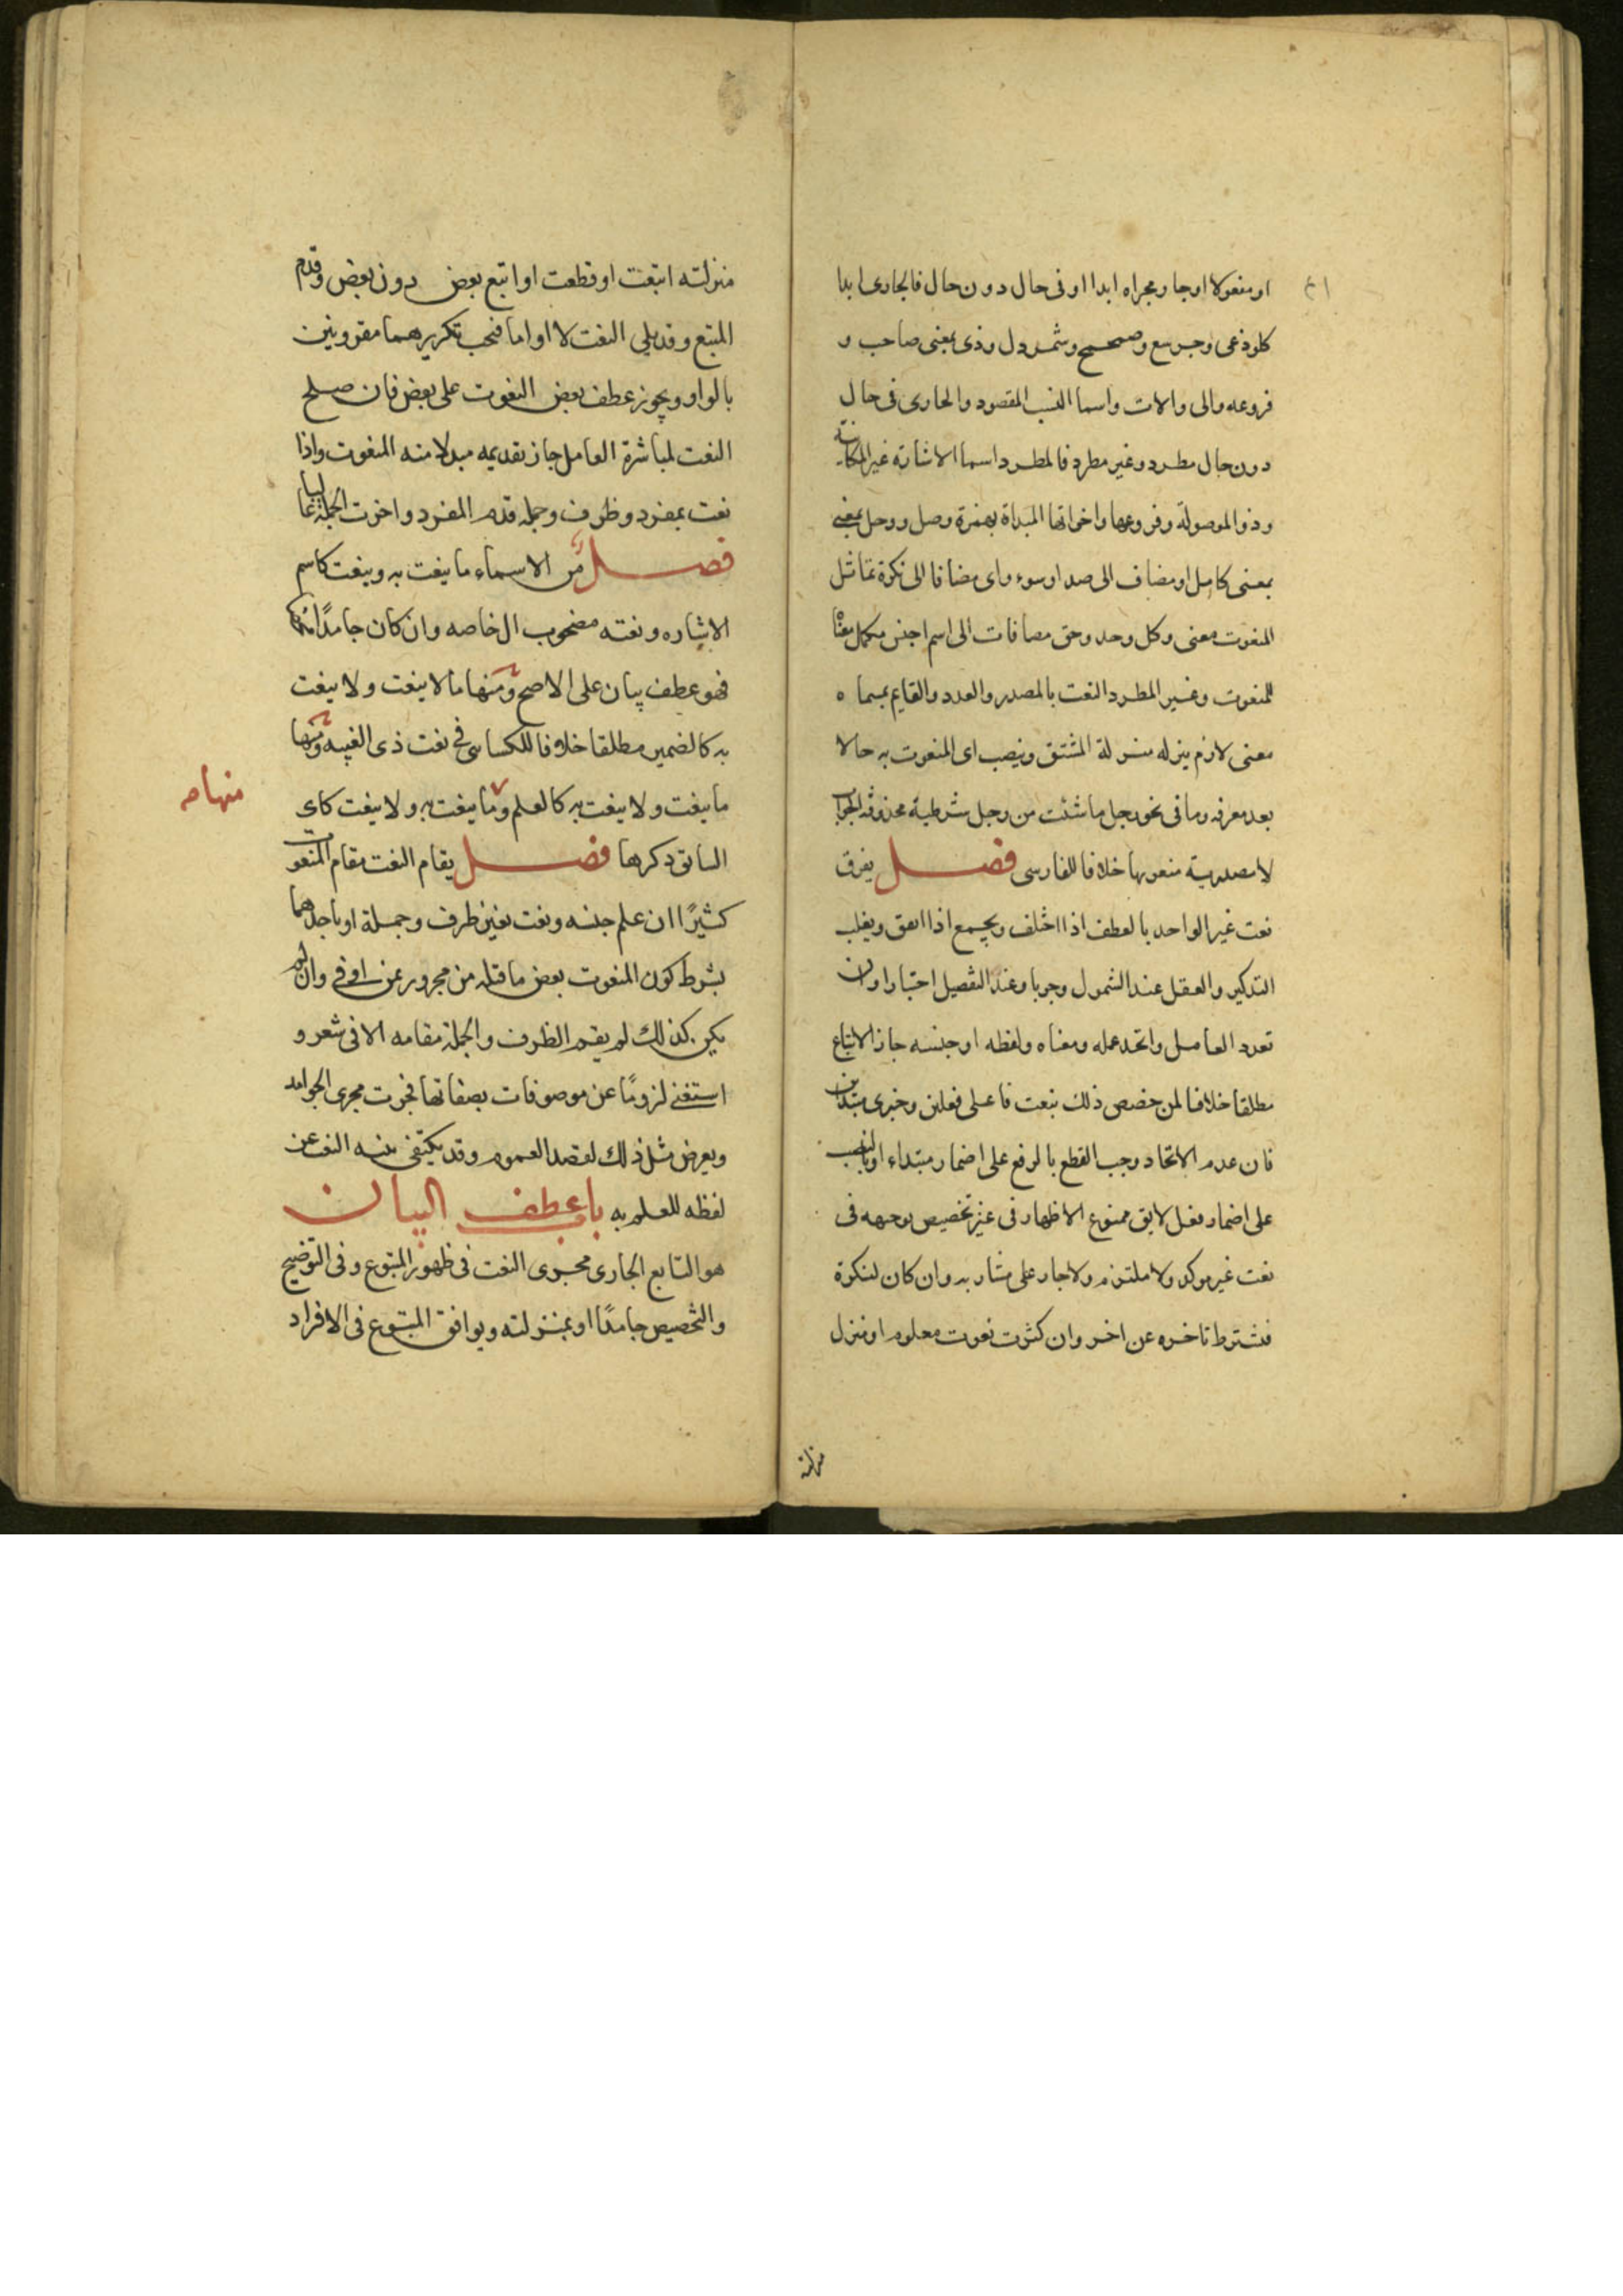 او مفعولا او جار مجراه ابدا او فى حال دون حال فالجارى ابدا
كلوذعى وجرشع وصمحمح وشمردل وذى بمعنى صاحب و
فروعه والى والات واسما النسب المقصود والجارى فى حال
دون حال مطرد وغير مطرد فالمطرد اسما الاشارة غير المكانية
وذو الموصولة وفروعها واخواتها المبداة بهمزة وصل ورجل بمعنى
بمعنى كامل او مضاف الى صدا وسوء واى مضافا الى نكرة تماثل
المنعوت معنى وكل وجد وحق مضافات الى اسم جنس مكمل معناه
للمنعوت وغير المطرد النعت بالمصدر والعدد والقايم بمسماه
معنى لازم ينزله منزلة المشتق وينصب اى المنعوت به حالا
بعد معرفه وما فى نحو رجل ما شئت من رجل شرطية محذوفة الجواب
لا مصدرية منعوتها خلافا للفارسى فصل يفرق
نعت غير الواحد بالعطف اذا اختلف ويجمع اذا اتفق ويغلب
التذكير والعقل عند الشمول وجوبا وعند التفصيل اختيارا وان
تعدد العامل واتحد عمله ومعناه ولفظه او جنسه جاز الاتباع
مطلقا خلافا لمن خصص ذلك بنعت فاعلى فعلين وخبرى مبتداين
فان عدم الاتحاد وجب القطع بالرفع على اضمار مبتداء او بالنصب
على اضمار فعل لايق ممنوع الاظهار فى غير تخصيص بوجهه فى
نعت غير موكد ولا ملتزم ولا جار على مشار به وان كان لنكرة
فيشترط تاخره عن اخر وان كثرت نعوت معلوم او منزل
منزلته
منزلته اتبعت او قطعت او اتبع بعض دون بعض وقدم
المتبع وقد يلى النعت لا او اما فيجب تكريرهما مقرونين
بالواو ويجوز عطف بعض النعوت على بعض فان صلح
النعت لمباشرة العامل جاز تقديمه مبدلا منه المنعوت واذا
نعت بمفرد وظرف وجملة قدم المفرد واخرت الجملة غالبا
فصل من الاسماء ما ينعت به وينعت كاسم
الاشاره ونعته مصحوب ال خاصه وان كان جامدا محضا
فهو عطف بيان على الاصح ومنها ما لا ينعت ولا ينعت
به كالضمير مطلقا خلافا للكسائى فى نعت ذى الغيبه ومنها
ما ينعت ولا ينعت به كالعلم وما ينعت به ولا ينعت كاى
منها صح
السابق ذكرها فصل يقام النعت مقام المنعوت
كثيرًا ان علم جنسه ونعت بغير ظرف وجملة او باحدهما
بشرط كون المنعوت بعض ما قبله من مجرور بمن او فى وان لم
يكن كذلك لم يقم الظرف والجملة مقامه الا فى شعر و
استغنى لزومًا عن موصوفات بصفاتها فجرت مجرى الجوامد
ويعرض مثل ذلك لقصد العموم وقد يكتفى بنيه النعت عن
لفظه للعلم به باب عطف البيان
هو التابع الجارى مجرى النعت فى ظهور المتبوع وفى التوضيح
والتخصيص جامدًا او بمنزلته ويوافق المتبوع فى الافراد